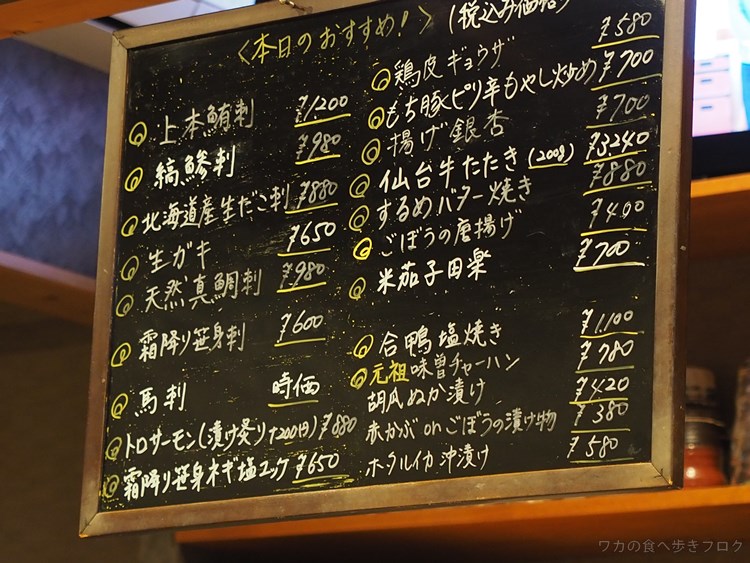 ＜本日のおすすめ！＞ (税込み価格)
上本鮪刺 ¥1,200
縞鯵刺 ¥980
北海道産生だこ刺 ¥880
生ガキ ¥650
天然真鯛刺 ¥980
霜降り笹身刺 ¥600
馬刺 時価
トロサーモン(漬け炙り+200円) ¥880
霜降り笹身ネギ塩ユッケ ¥650
鶏皮ギョウザ ¥580
もち豚とピリ辛もやし炒め ¥700
揚げ銀杏 ¥700
仙台牛たたき(200g) ¥3240
するめバター焼き ¥880
ごぼうの唐揚げ ¥400
米茄子田楽 ¥700
合鴨塩焼き ¥1,100
元祖味噌チャーハン ¥780
胡瓜ぬか漬け ¥420
赤かぶorごぼうの漬け物 ¥380
ホタルイカ沖漬け ¥580
ワカの食べ歩きブログ